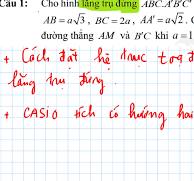 Câu 1: Cho hình lăng trụ đứng ABC.A'B'C'
AB = a√3, BC = 2a, AA' = a√2.
đường thẳng AM và B'C khi a = 1
+ Cách đặt hệ trục toạ đ
lăng trụ đứng.
+ CASIO tích có hướng hai